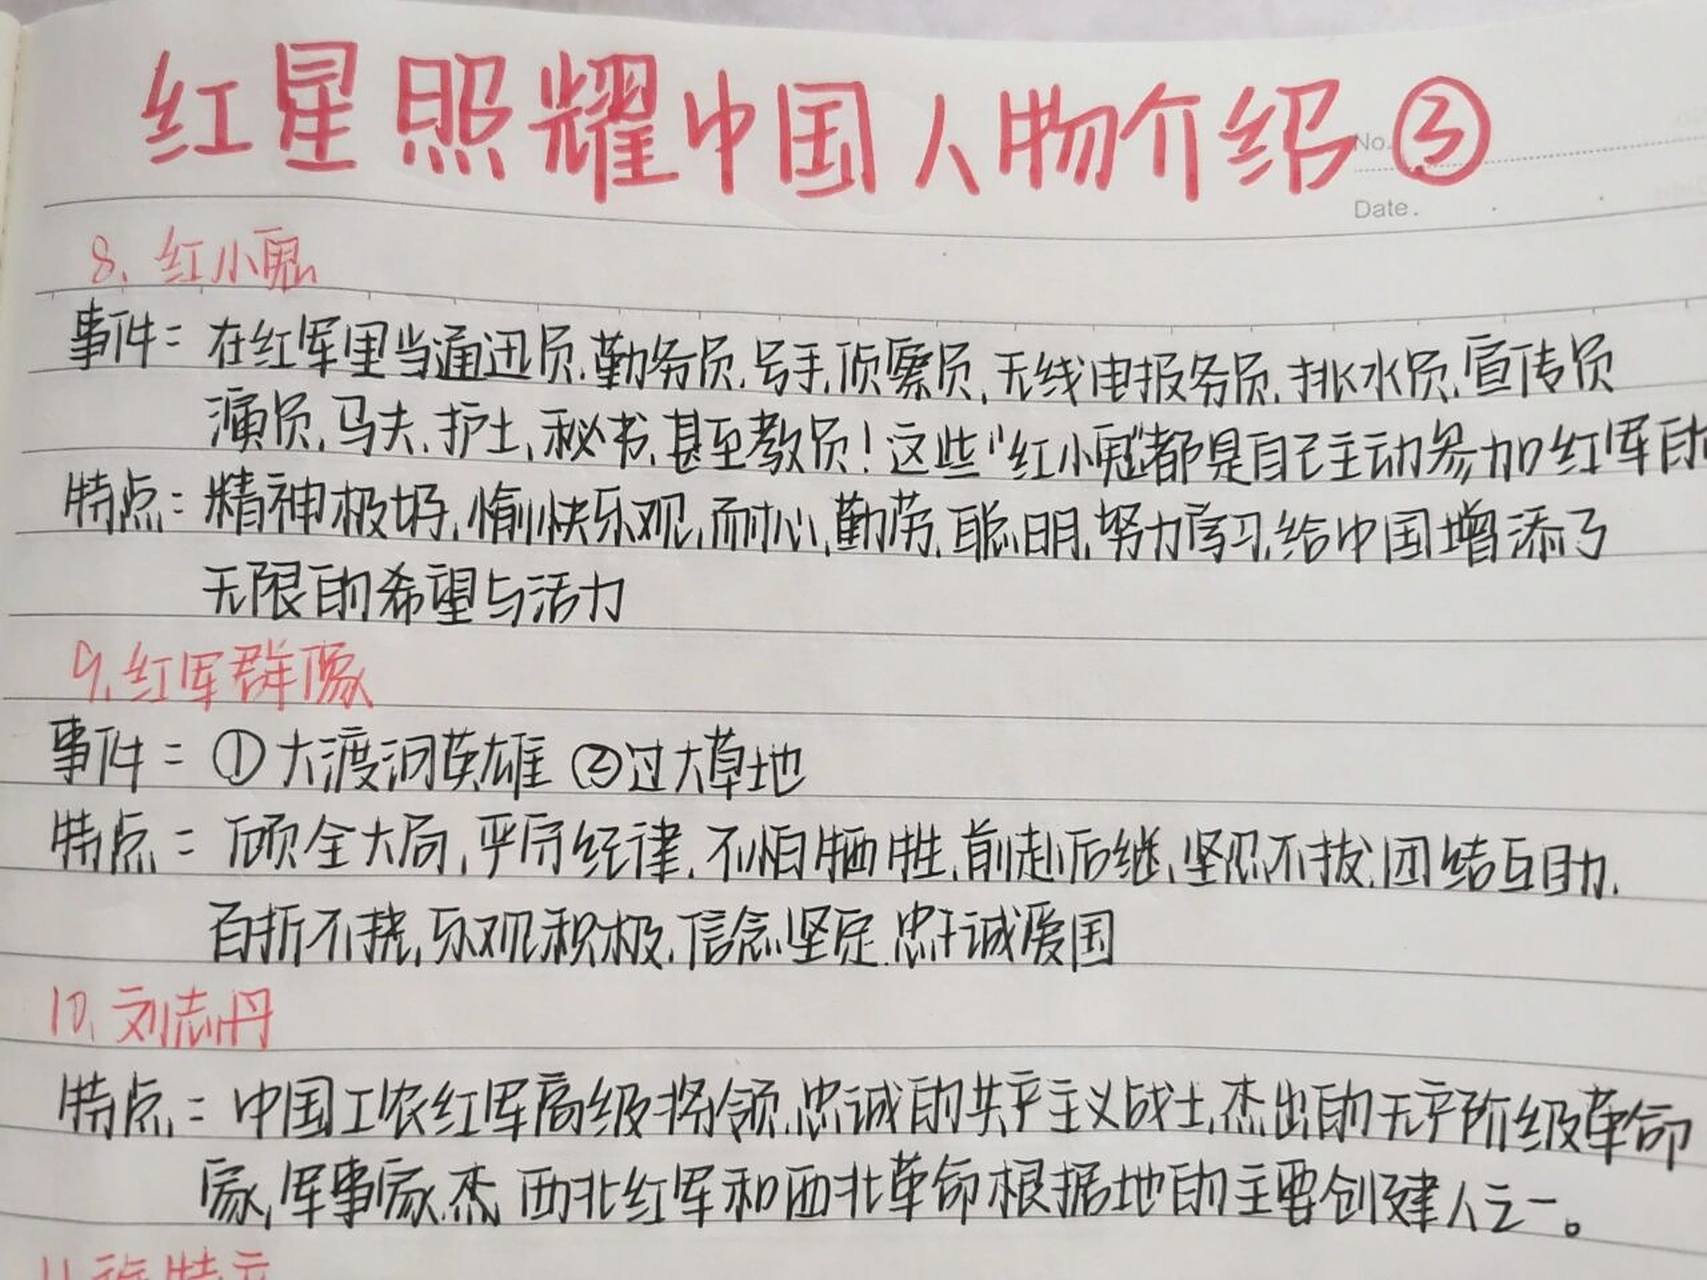 红星照耀中国人物介绍③
No.
Date.
8、红小鬼
事件：在红军里当通讯员、勤务员、号手、侦察员、无线电报务员、挑水员、宣传员
演员、马夫、护士、秘书、甚至教员！这些"红小鬼"都是自己主动参加红军的
特点：精神极好、愉快乐观、耐心、勤劳、聪明、努力学习、给中国增添了
无限的希望与活力
9、红军群像
事件：①大渡河英雄 ②过大草地
特点：顾全大局、严守纪律、不怕牺牲、前赴后继、坚忍不拔、团结互助、
百折不挠、乐观积极、信念坚定、忠于诚爱国
10、刘志丹
特点：中国工农红军高级将领、忠诚的共产主义战士、杰出的无产阶级革命
家、军事家、杰、西北红军和西北革命根据地的主要创建人之一。